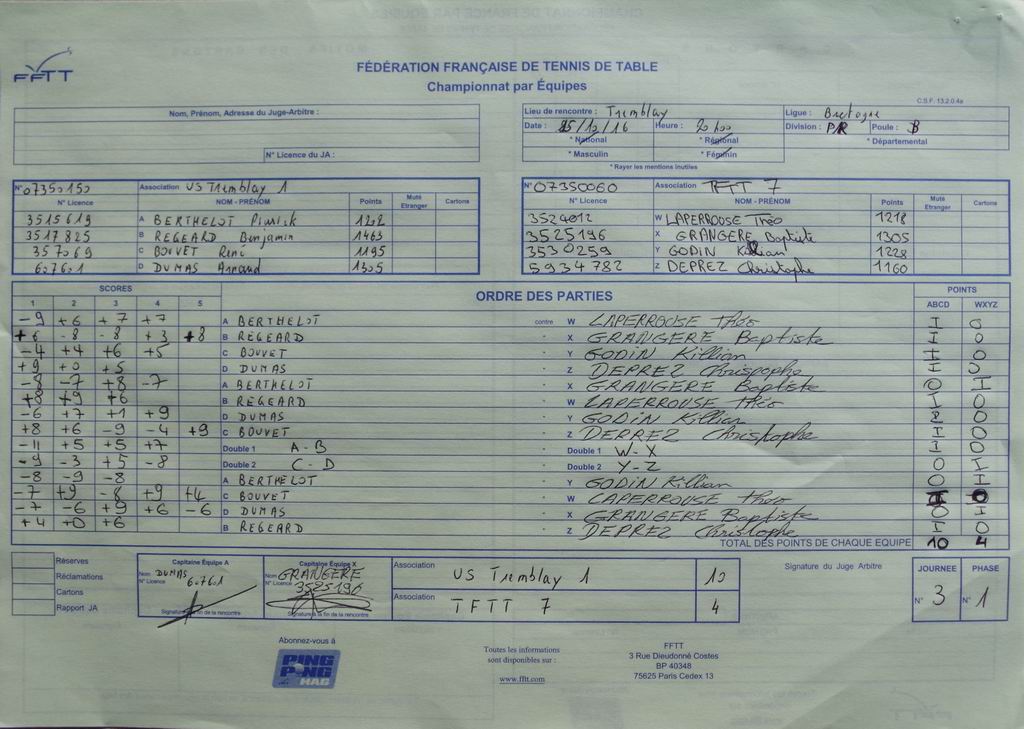 FFTT
FÉDÉRATION FRANÇAISE DE TENNIS DE TABLE
Championnat par Équipes
C.S.F. 13.2.0.4a
Nom, Prénom, Adresse du Juge-Arbitre :
N° Licence du JA :
Lieu de rencontre : Tremblay
Ligue : Bretagne
Date : 25/12/16 Heure : 20h00
Division : PR Poule : B
* National * Régional * Départemental
* Masculin * Féminin
* Rayer les mentions inutiles
N° 07350150 Association US Tremblay 1
N° Licence NOM - PRÉNOM Points Muté Etranger Cartons
3515619 A BERTHELOT Pierrick 1202
3517825 B REGEARD Benjamin 1463
357069 C BOUVET René 1195
607601 D DUMAS Arnaud 1305
N° 07350060 Association TFTT 7
N° Licence NOM - PRÉNOM Points Muté Etranger Cartons
3524012 W LAPERROUSE Théo 1218
3525196 X GRANGERE Baptiste 1305
3530259 Y GODIN Killian 1228
5934782 Z DEPREZ Christophe 1160
SCORES ORDRE DES PARTIES POINTS
1 2 3 4 5 ABCD WXYZ
-9 +6 +7 +7 A BERTHELOT contre W LAPERROUSE Théo I 0
+6 -8 -8 +3 +8 B REGEARD X GRANGERE Baptiste I 0
-4 +4 +6 +5 C BOUVET Y GODIN Killian I 0
+9 +0 +5 D DUMAS Z DEPREZ Chrispophe I 0
-8 -7 +8 -7 A BERTHELOT X GRANGERE Baptiste 0 I
+8 +9 +6 B REGEARD W LAPERROUSE Théo I 0
-6 +7 +1 +9 D DUMAS Y GODIN Killian 0
+8 +6 -9 -4 +9 C BOUVET Z DEPREZ Christophe I 0
-11 +5 +5 +7 Double 1 A-B Double 1 W-X I 0
-9 -3 +5 -8 Double 2 C-D Double 2 Y-Z 0 I
-8 -9 -8 A BERTHELOT Y GODIN Killian 0 I
-7 +9 -8 +9 +4 C BOUVET W LAPERROUSE Théo I 0
-7 -6 +9 +6 -6 D DUMAS X GRANGERE Baptiste 0 I
+4 +0 +6 B REGEARD Z DEPREZ Christophe I 0
TOTAL DES POINTS DE CHAQUE EQUIPE 10 4
Réserves
Réclamations
Cartons
Rapport JA
Capitaine Équipe A
Nom DUMAS
N° Licence 607601
Signature à la fin de la rencontre
Capitaine Équipe X
Nom GRANGERE
N° Licence 3525196
Signature à la fin de la rencontre
Association US Tremblay 1 10
Association TFTT 7 4
Signature du Juge Arbitre
JOURNEE PHASE
N° 3 N° 1
Abonnez-vous à
PING PONG MAG
Toutes les informations
sont disponibles sur :
www.fftt.com
FFTT
3 Rue Dieudonné Costes
BP 40348
75625 Paris Cedex 13